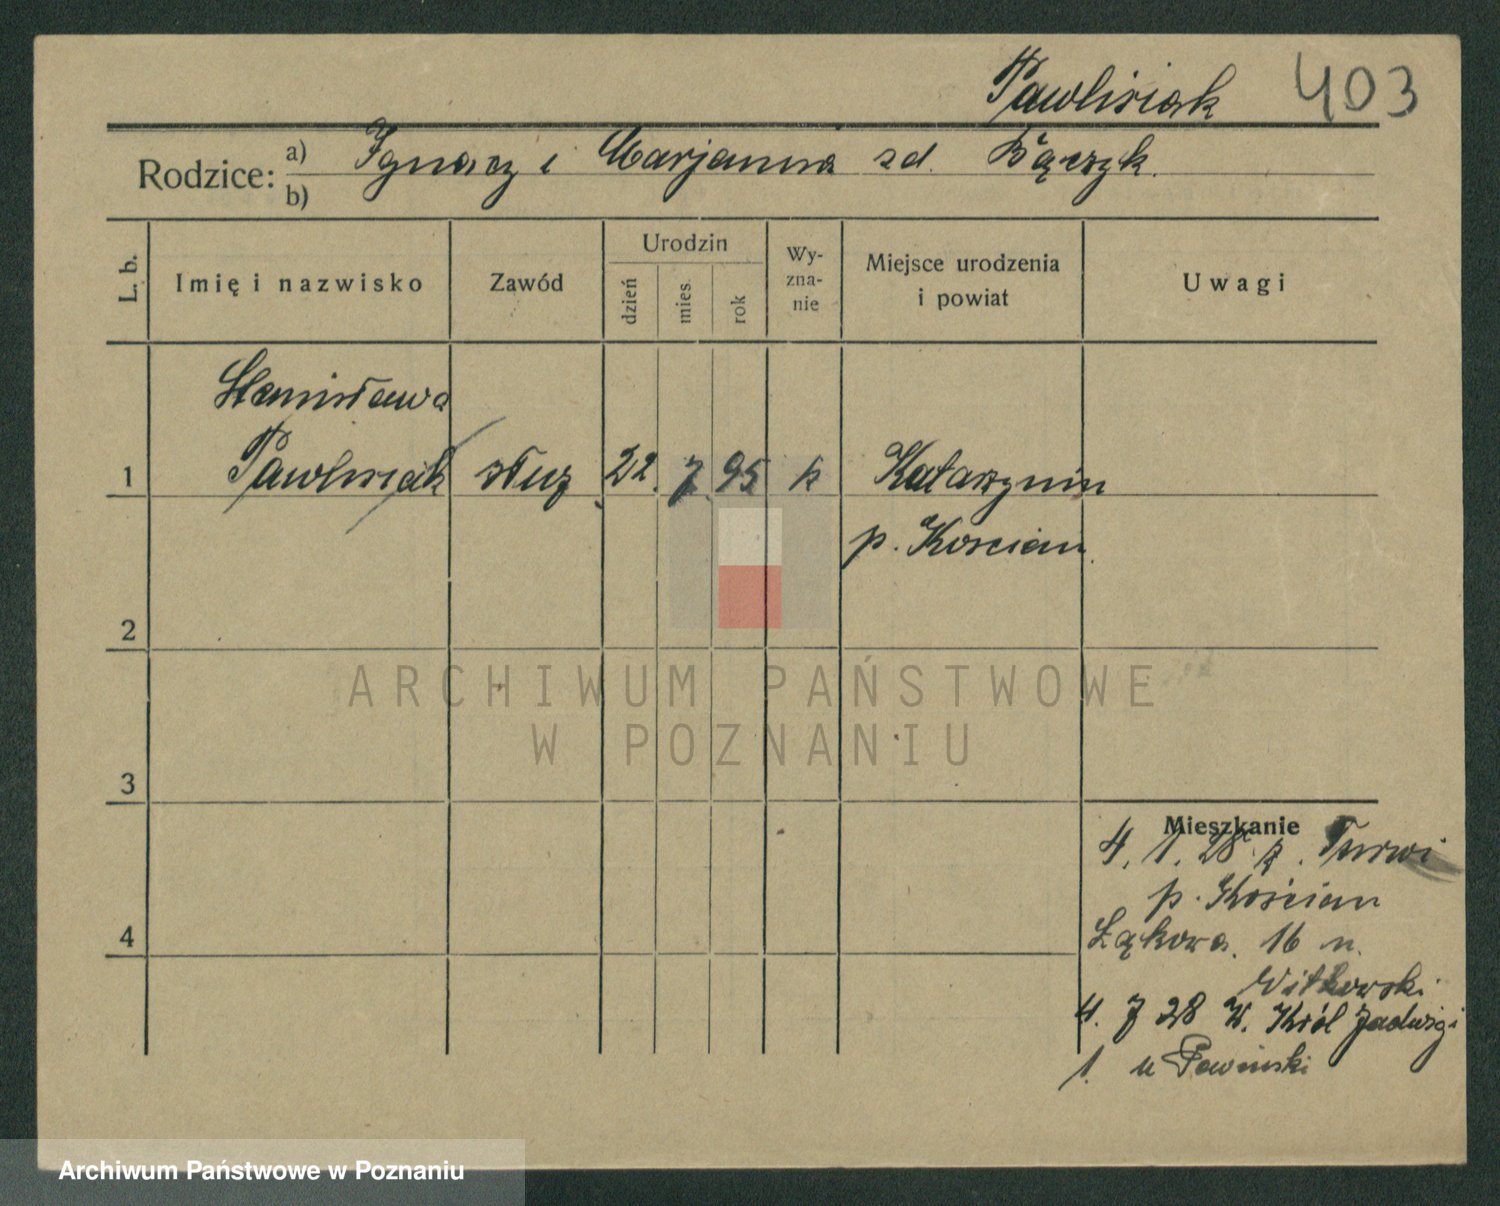 Pawlisiak 403
Rodzice: a) Ignacy i Marjanna zd. Bączyk.
b)
L. b.
Imię i nazwisko
Zawód
Urodzin
dzień
mies.
rok
Wy-
zna-
nie
Miejsce urodzenia
i powiat
Uwagi
Stanisława
1 Pawlisiak służ 22. 7. 95 k Katarzynin
p. Koscian.
2
3
4
Mieszkanie
4. 1. 28 z. Turwi
p. Kościan
Łąkowa. 16 u.
Witkowski
4. 7 28 W. Król Jadwigi
1. u Pawinski
ARCHIWUM PAŃSTWOWE
W POZNANIU
Archiwum Państwowe w Poznaniu